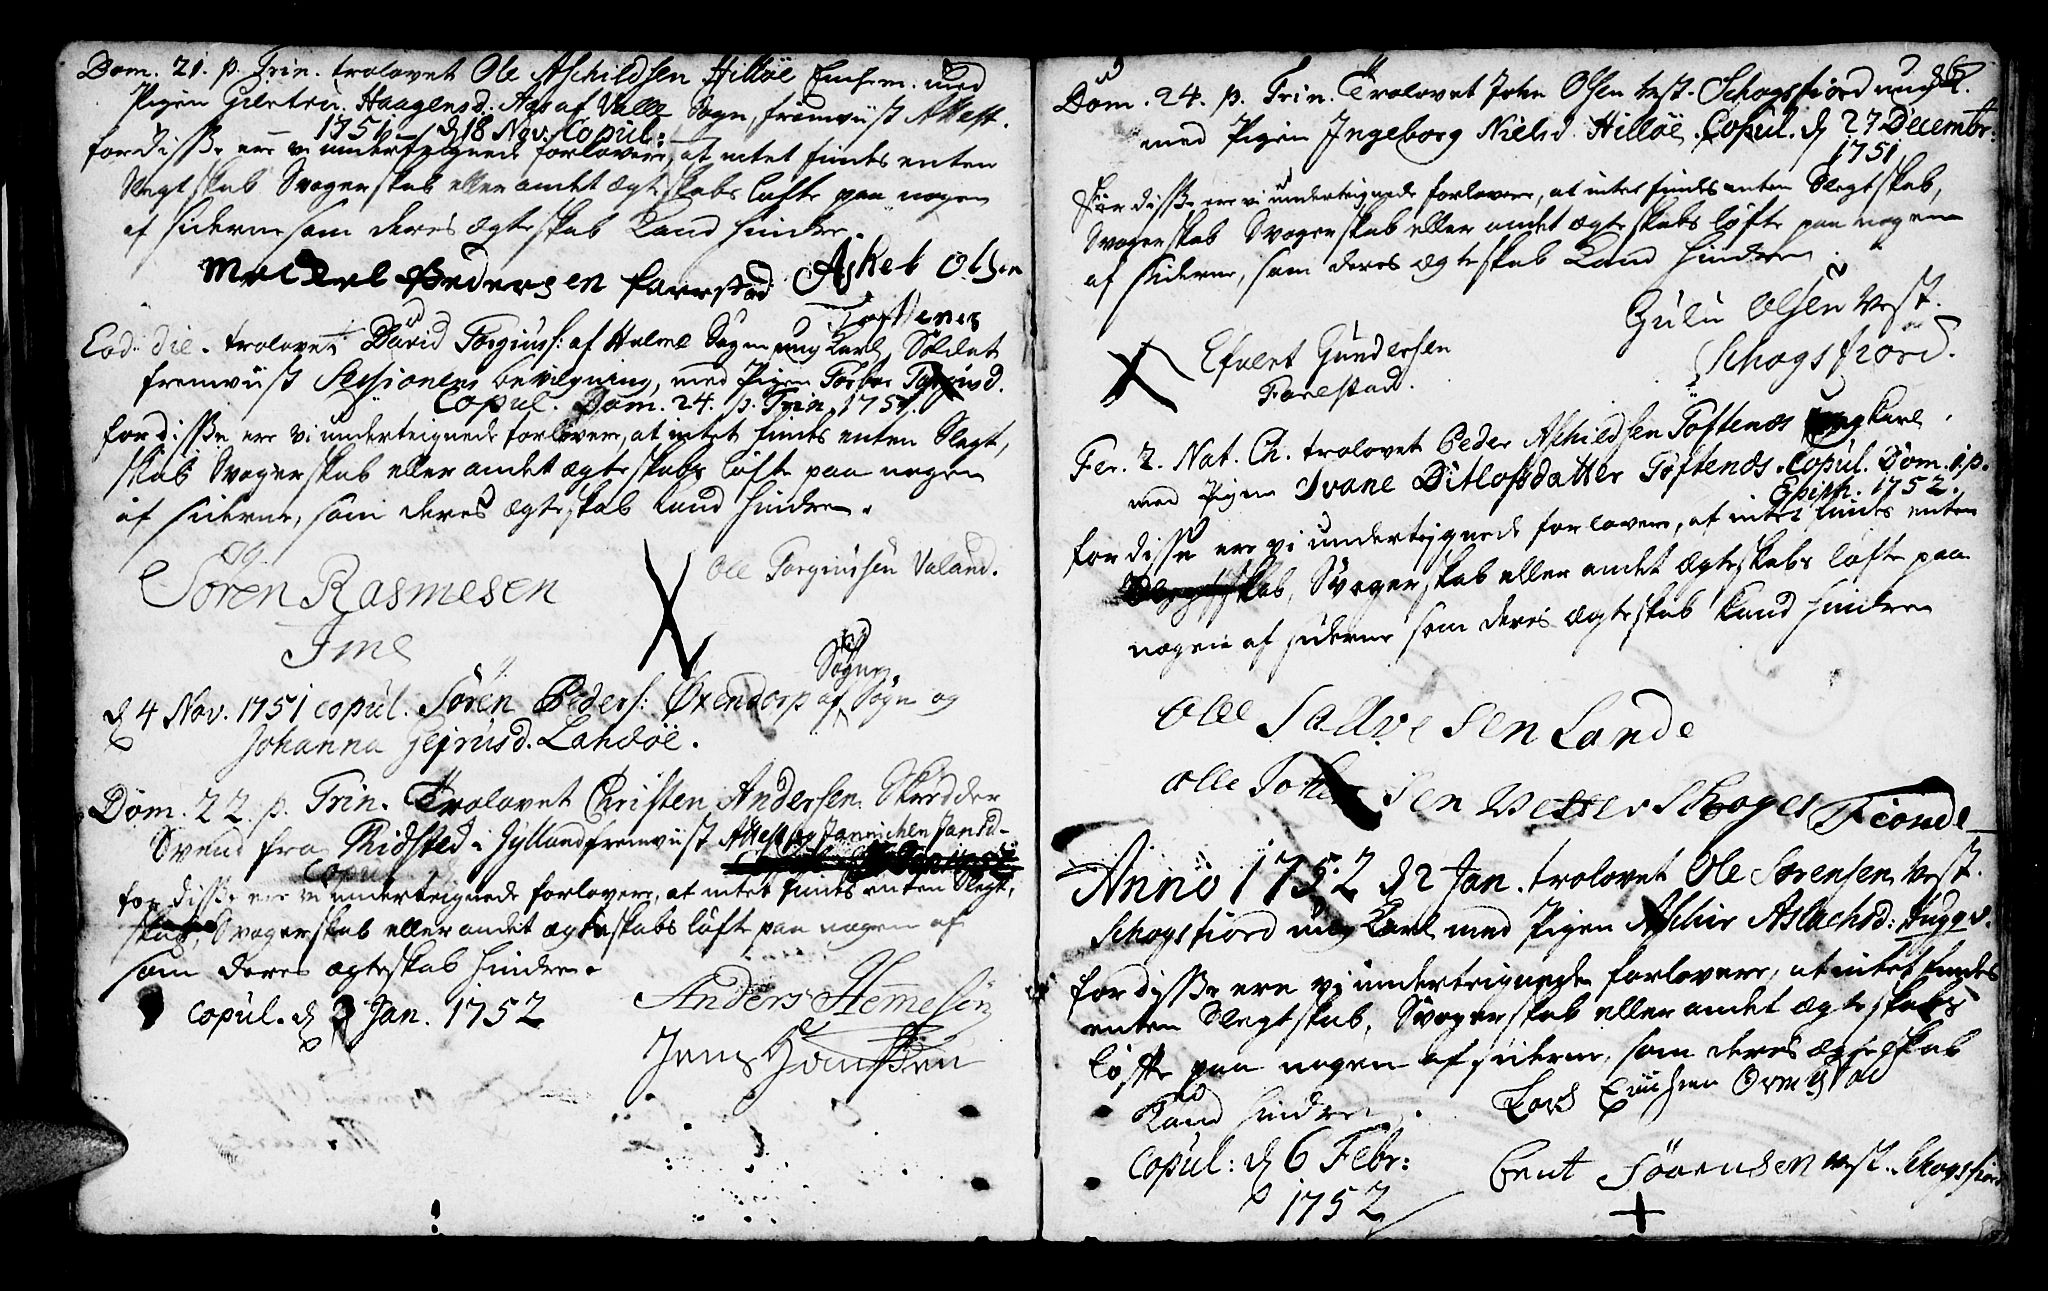 Dom. 21. p. Trin. trolovet Ole Aschildsen Hilløe med
Pigen Haagensd. af Valle Sogn, fremviist Attest.
1751 d 18 Nov. Copul:
for disse ere vi underteignede forlovere, at intet findes enten
Slegtskab Svogerskab eller andet ægteskabs løfte paa nogen
af siderne som deres ægteskab kand hindre.
Michel Pedersen Faarestad Asket Olsen
Toftenes
Eod. die. trolovet David Torgiuss: af Halme Sogn ung Karl, Soldat
fremviist Sessionens bevilgning, med Pigen Torbor
Copul. Dom. 24. p. Trin. 1751.
for disse ere vi underteignede forlovere, at intet findes enten Slegt,
skab Svogerskab eller andet ægteskabs løfte paa nogen
af siderne, som deres ægteskab kand hindre.
Sören Rasmesen
Ime
Ole Torgiussen Valand.
d 4 Nov. 1751 copul. Sören Peders: Øxendorp af Sogne Sogn og
Johanna Gejrusd. Landøe.
Dom. 22. p. Trin. Trolovet Christen Andersen Skrædder
Svend fra Thidsted i Jylland fremviist Attest og Jannichen Jansd-
Copul
for disse ere vi underteignede forlovere, at intet findes enten Slegt,
skab, Svogerskab eller andet ægteskabs løfte paa nogen af
som deres ægteskab hindre.
copul. d 3 Jan. 1752
Anders
Jens
Dom. 24. p. Trin. Trolovet John Olsen Vest. Schogsfiord ung K.
med Pigen Ingeborg Nielsd. Hilløe. Copul. d 27 Decembr.
1751
For disse ere vi underteignede forlovere, at intet findes enten Slegtskab,
Svogerskab Svogerskab eller andet ægteskabs løfte paa nogen
af siderne, som deres ægteskab kand hindre.
Olsen Vest.
Schogsfiord.
Gundersen
Faarestad.
Fer. 2. Nat. Ch. trolovet Peder Aschildsen Toftenæs ung Karl
med Pigen Svane Ditlofsdatter Toftenæs. Copul. Dom. 1. p.
Epiph. 1752.
for disse ere vi underteignede forlovere, at intet findes enten
Slegtskab, Svogerskab eller andet ægteskabs løfte paa
nogen af siderne som deres ægteskab kand hindre
Olle Sallve Sen Lande
Olle Sen Vetter Skoges Fionde
Anno 1752 d 2 Jan. trolovet Ole Sørensen Vest.
Schogsfiord ung Karl med Pigen Aslachsd:
for disse ere vi underteignede forlovere, at intet findes
enten Slegtskab, Svogerskab eller andet ægteskabs
løfte paa nogen af siderne, som deres ægteskab
kand hindre.
Copul: d 6 Febr:
1752
Bent Sörensen Vest. Schogsfiord